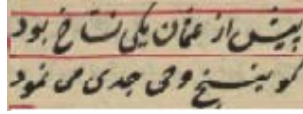 پیش از عثمان یکی نساخ بود
کو بنسخ وحی جدی می نمود